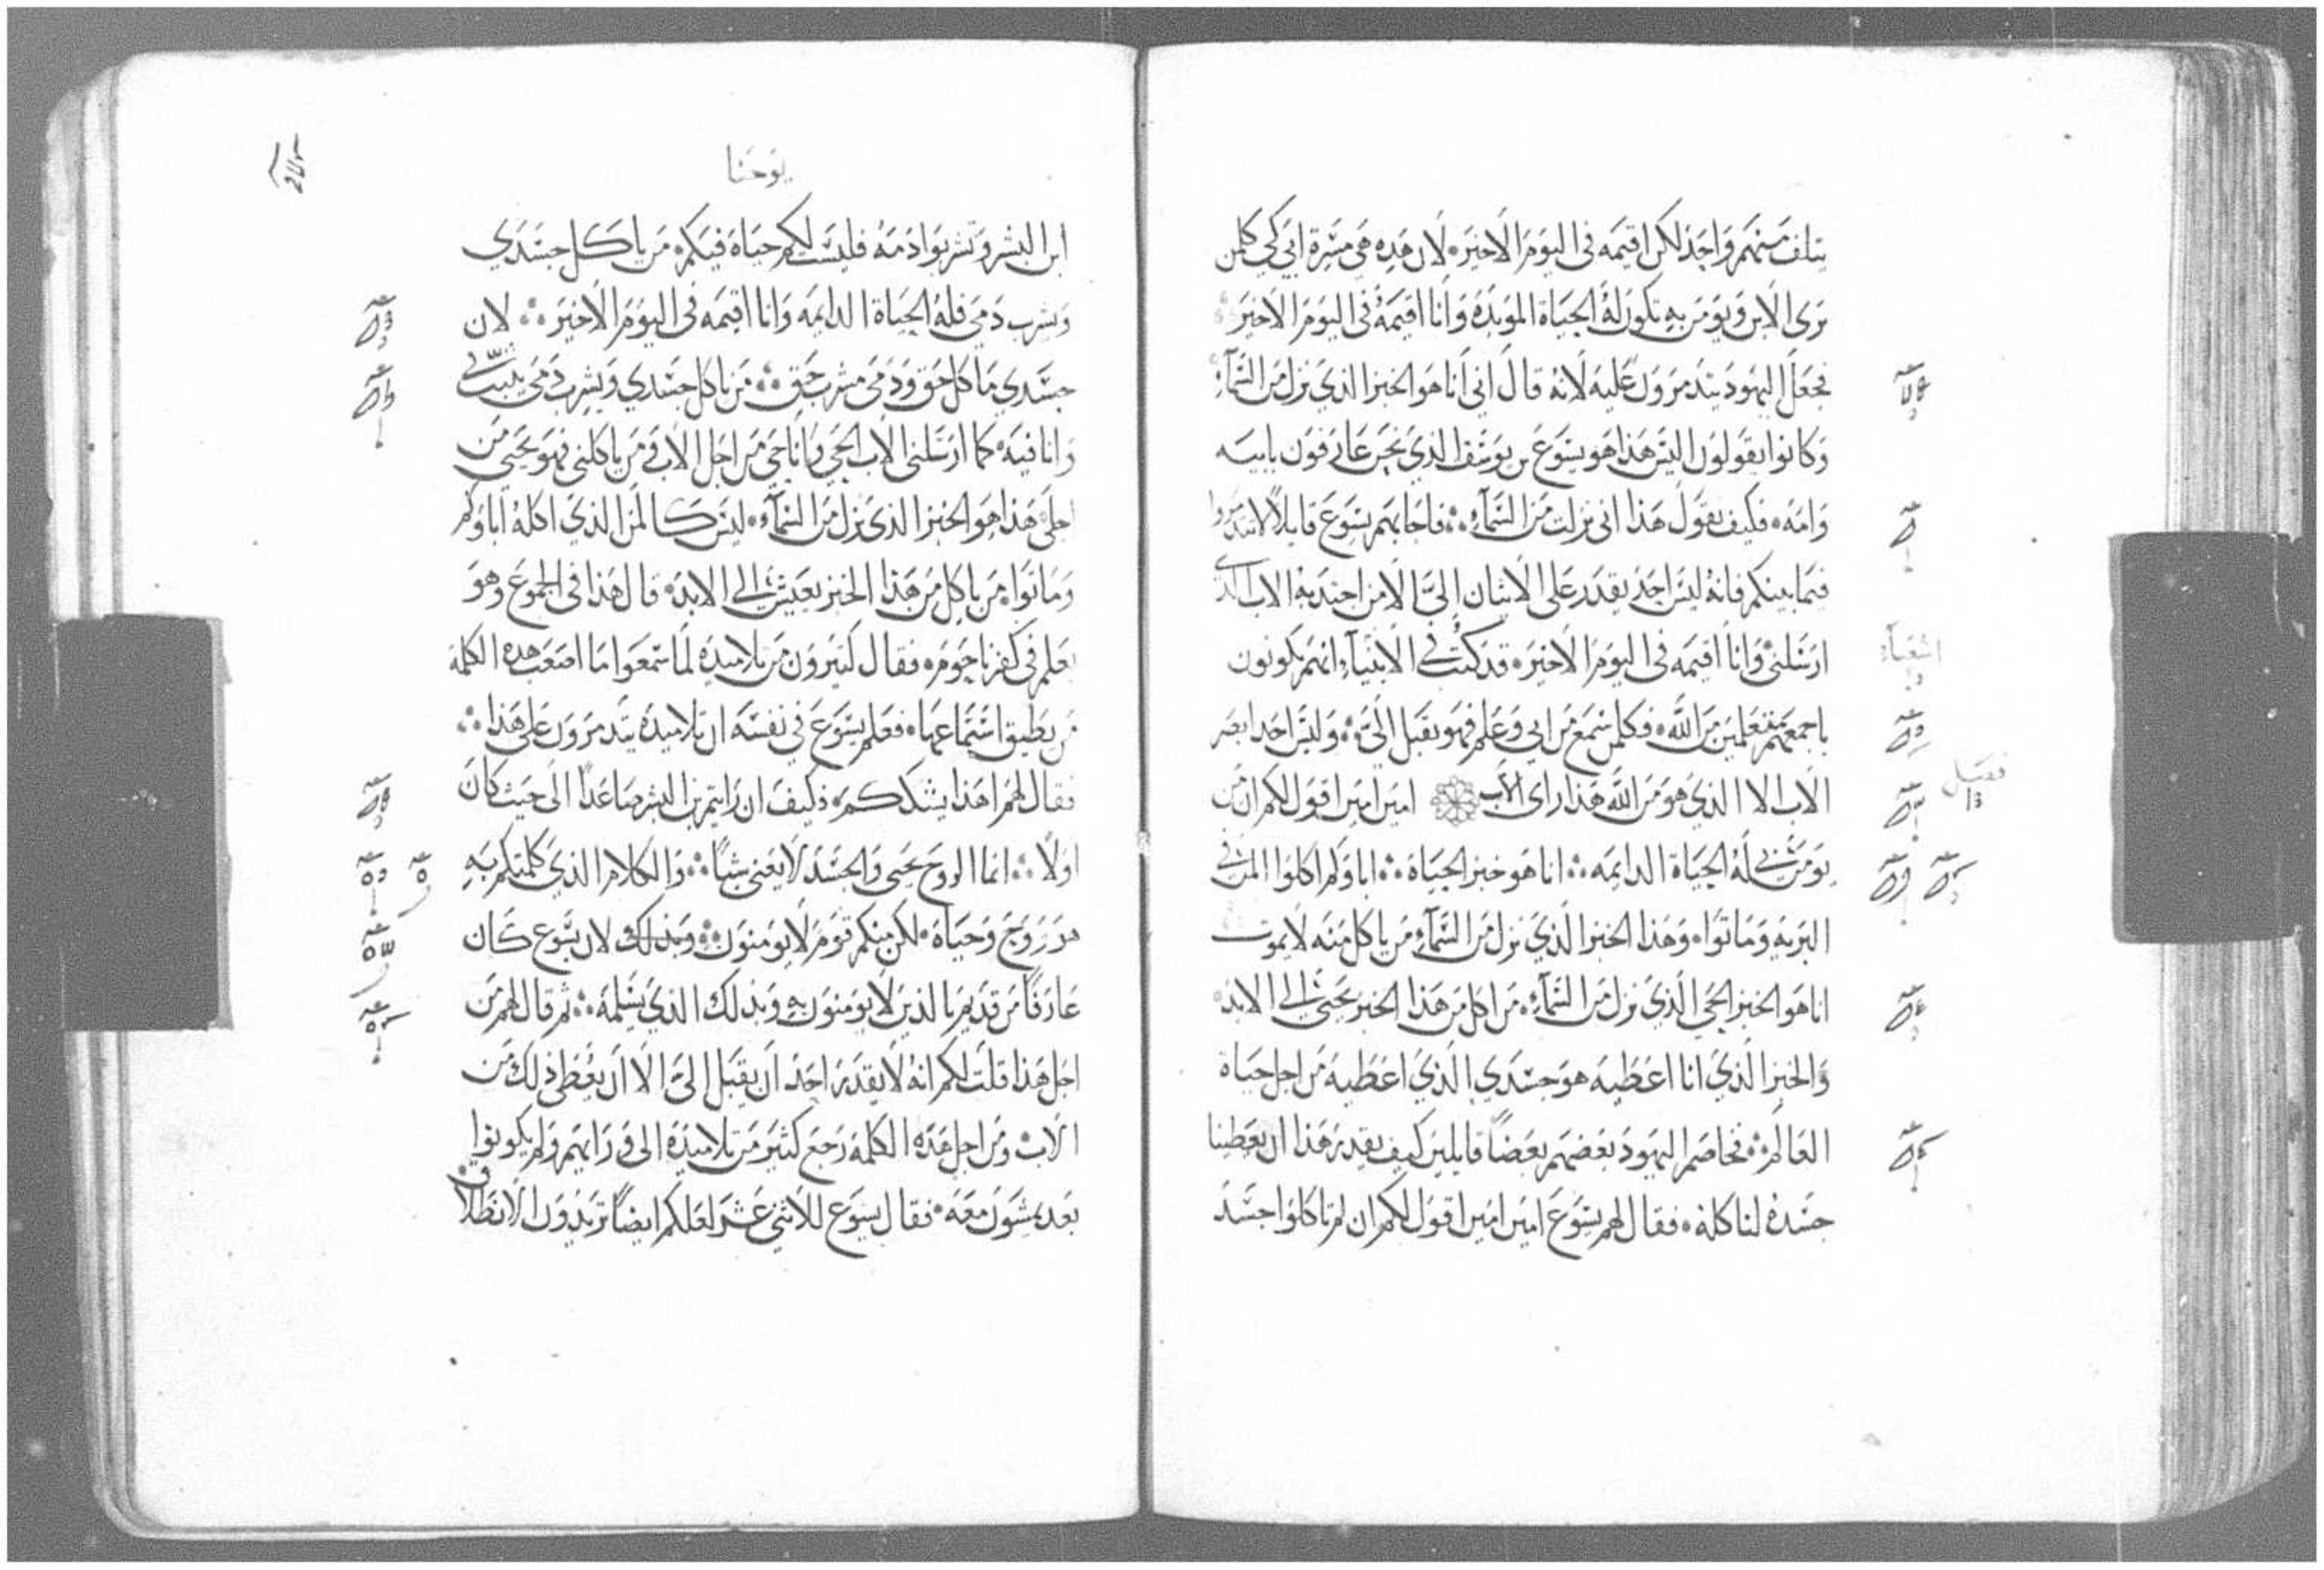 يتلف منهم واحد لكن اقيمه في اليوم الاخير. لان هذه هي مسرة ابي لكي كلمن
يرى الابن ويومن به تكون له الحياة الموبده وانا اقيمه في اليوم الاخير
فجعل اليهود يتدمرون عليه لانه قال اني انا هو الخبز الذي نزل من السمآء
وكانوا يقولون اليس هذا هو يسوع بن يوسف الذي نحن عارفون بابيه
وامه. فكيف يقول هذا اني نزلت من السمآء. فاجابهم يسوع قايلاً لا تتدمروا
فيما بينكم فانه ليس احد يقدر على الاتيان إليَّ الا من اجتذبه الاب الذي
ارسلني وانا اقيمه في اليوم الاخير. قد كُتب في الانبيآء انهم يكونون
اشعيآء
باجمعهم متعلمين من الله. فكلمن سمع من ابي وعلم فهو يقبل اليَّ. وليس احد ابصر
الاب الا الذي هو من الله هذا راى الاب امين امين اقول لكم ان من
فصل
١٣
يومن بي له الحياة الدايمه. انا هو خبز الحياة. اباوكم اكلوا المن في
البريه وماتوا. وهذا الخبز الذي نزل من السمآء من ياكل منه لا يموت
انا هو الخبز الحي الذي نزل من السمآء. من اكل من هذا الخبز يحيى الى الابد.
والخبز الذي انا اعطيه هو جسدي الذي اعطيه من اجل حياة
العالم. فخاصم اليهود بعضهم بعضاً قايلين كيف يقدر هذا ان يعطينا
جسده لناكله. فقال لهم يسوع امين امين اقول لكم ان لم تاكلوا جسد
يوحنا
ابن البشر وتشربوا دمه فليست لكم حياة فيكم. من ياكل جسدي
ويشرب دمي فله الحياة الدايمه وانا اقيمه في اليوم الاخير. لان
جسدي ماكل حق ودمي مشرب حق. من ياكل جسدي ويشرب دمي يثبت فيّ
وانا فيه. كما ارسلني الاب الحي وانا حي من اجل الاب فمن ياكلني فهو يحيي من
اجلي. هذا هو الخبز الذي نزل من السمآء. ليس كالمن الذي اكله اباوكم
وماتوا. من ياكل من هذا الخبز يعيش الى الابد. قال هذا في المجمع وهو
يعلم في كفرناحوم. فقال كثيرون من تلاميذه لما سمعوا ما اصعب هذه الكلمة
من يطيق استماعها. فعلم يسوع في نفسه ان تلاميذه يتدمرون على هذا.
فقال لهم اهذا يشككم. فكيف ان رايتم بن البشر صاعداً الى حيث كان
اولاً. انما الروح يحيى والجسد لا يغني شياً. والكلام الذي كلمتكم به
هو روح وحياة. لكن منكم قوم لا يومنون. وبذلك لان يسوع كان
عارفاً من قديم بالذين لا يومنون به وبذلك الذي يسلمه. ثم قال لهم من
اجل هذا قلت لكم انه لا يقدر احد ان يقبل اليَّ الا ان يعطى ذلك من
الاب. ومن اجل هذه الكلمه رجع كثير من تلاميذه الى ورايهم ولم يكونوا
بعد يمشون معه. فقال يسوع للاثني عشر لعلكم ايضاً تريدون الانطلاق